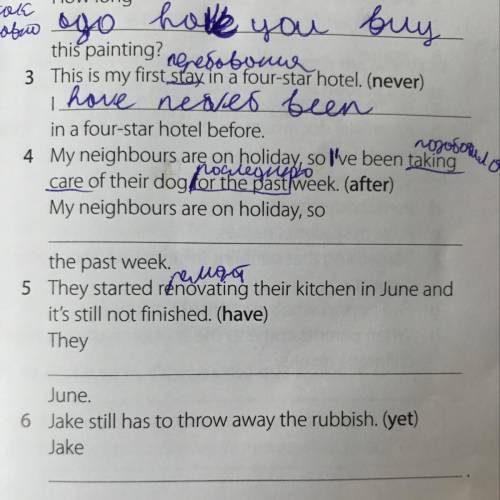 How long
ago have you buy
this painting?
3 This is my first stay in a four-star hotel. (never)
I have never been
in a four-star hotel before.
4 My neighbours are on holiday, so I've been taking
последнюю
care of their dog for the past week. (after)
My neighbours are on holiday, so
the past week.
5 They started renovating their kitchen in June and
it's still not finished. (have)
They
June.
6 Jake still has to throw away the rubbish. (yet)
Jake